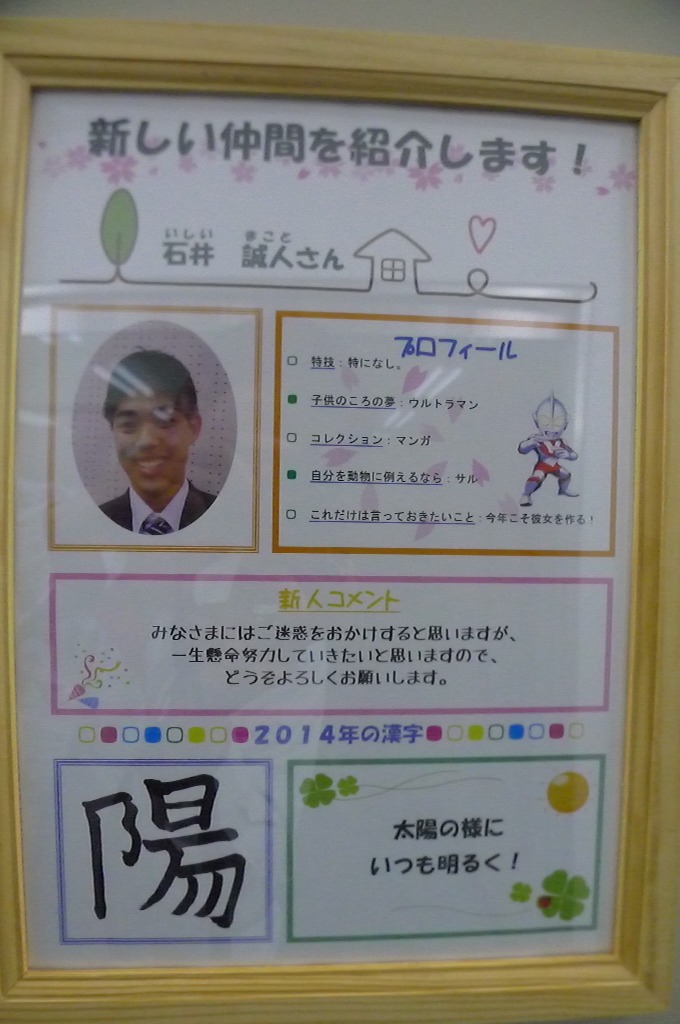 新しい仲間を紹介します！
いしい まこと
石井 誠人さん
プロフィール
特技：特になし。
子供のころの夢：ウルトラマン
コレクション：マンガ
自分を動物に例えるなら：サル
これだけは言っておきたいこと：今年こそ彼女を作る！
新人コメント
みなさまにはご迷惑をおかけすると思いますが、
一生懸命努力していきたいと思いますので、
どうぞよろしくお願いします。
2014年の漢字
陽
太陽の様に
いつも明るく！